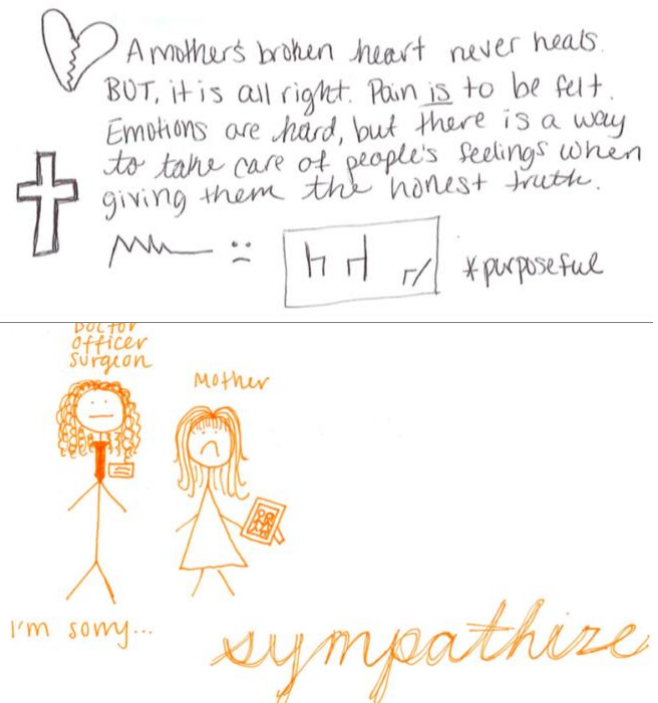 A mother's broken heart never heals.
BUT, it is all right. Pain is to be felt.
Emotions are hard, but there is a way
to take care of people's feelings when
giving them the honest truth.
*purposeful
Doctor
Officer
Surgeon
Mother
I'm sorry...
sympathize